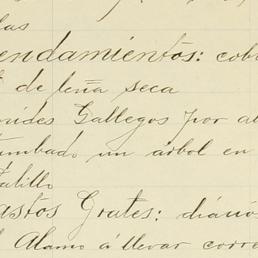 las
endamientos: cob
de leña seca
nides Gallegos por a
tumbado un árbol en
Jalillo
astos Grates: diario
l Alamo á llevar corre